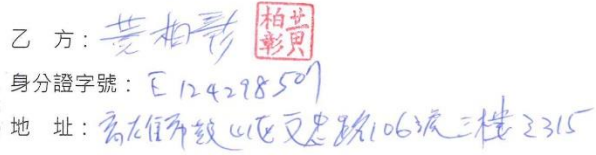 乙 方：黃柏彰 黃柏彰
身分證字號：E124298507
地 址：高雄市鼓山區文忠路106號三樓之315